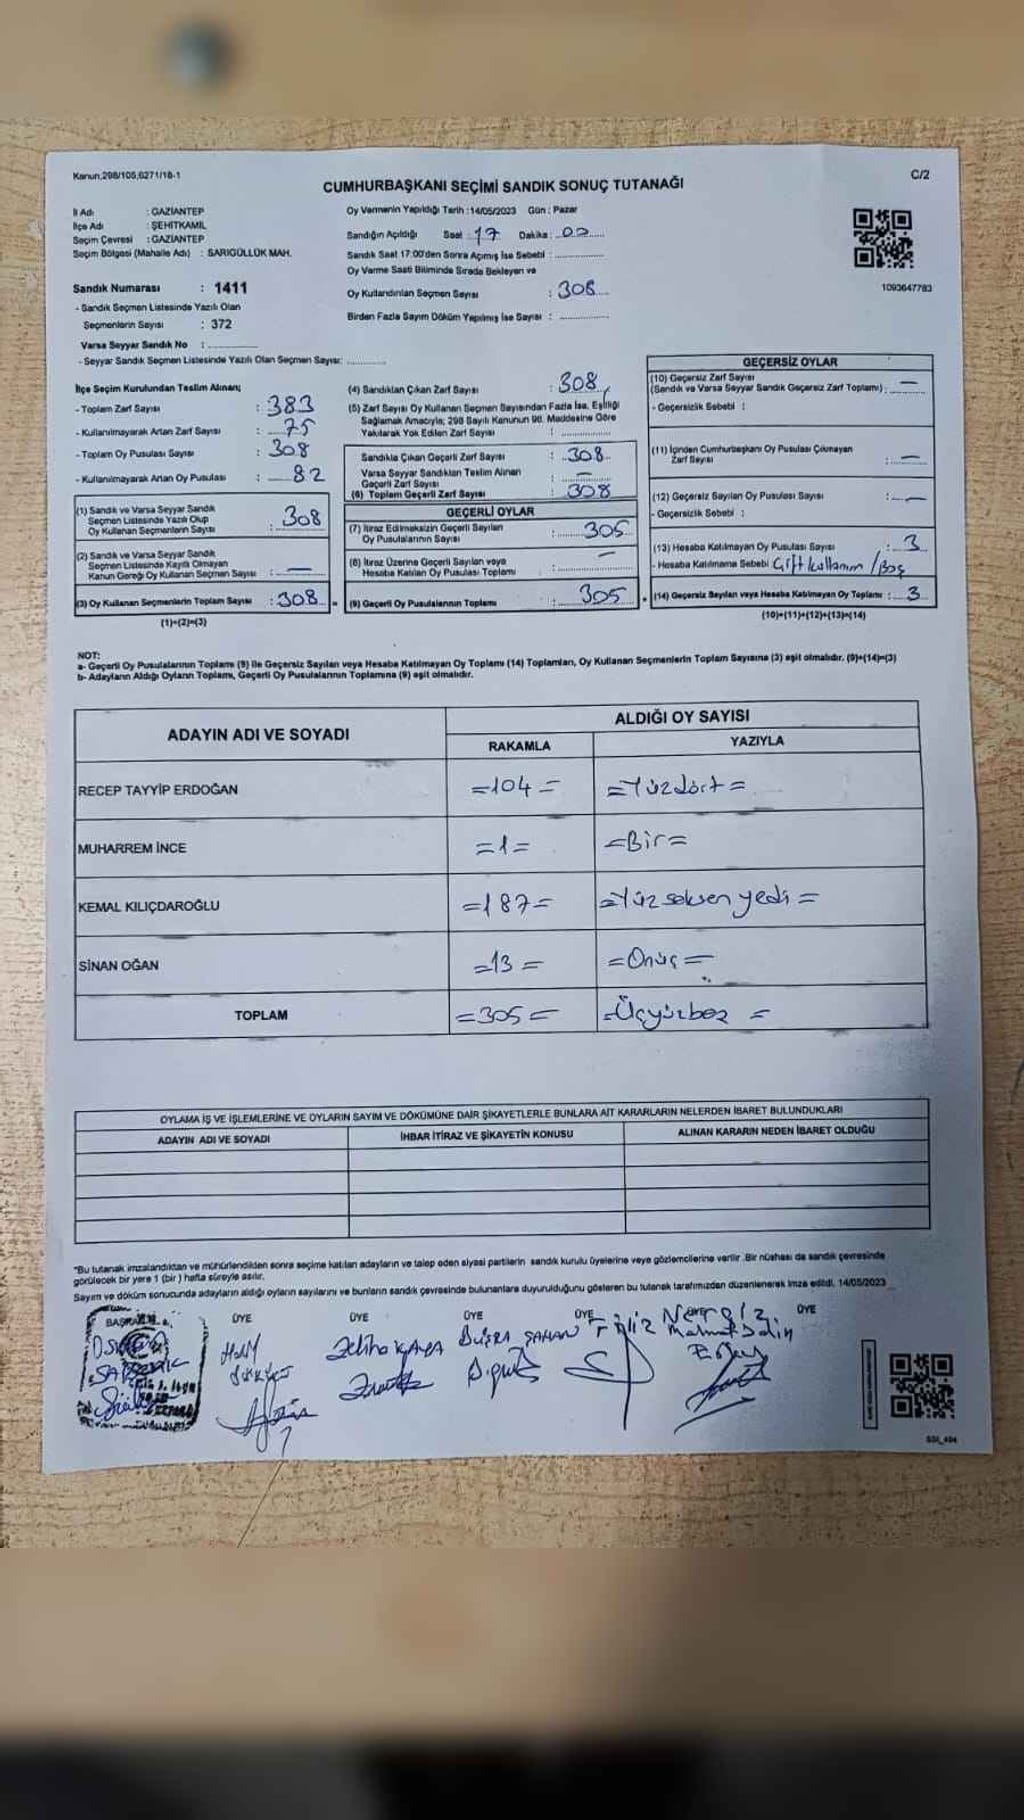 Kanun,298/105,6271/18-1
C/2
CUMHURBAŞKANI SEÇİMİ SANDIK SONUÇ TUTANAĞI
İl Adı : GAZİANTEP
İlçe Adı : ŞEHİTKAMİL
Seçim Çevresi : GAZİANTEP
Seçim Bölgesi (Mahalle Adı) : SARIGÜLLÜK MAH.
Sandık Numarası : 1411
- Sandık Seçmen Listesinde Yazılı Olan
Seçmenlerin Sayısı : 372
Varsa Seyyar Sandık No :
- Seyyar Sandık Seçmen Listesinde Yazılı Olan Seçmen Sayısı:
Oy Vermenin Yapıldığı Tarih :14/05/2023 Gün : Pazar
Sandığın Açıldığı Saat : 17 Dakika : 00
Sandık Saat 17:00'den Sonra Açımış İse Sebebi :
Oy Verme Saati Bitiminde Sırada Bekleyen ve
Oy Kullandırılan Seçmen Sayısı : 308
Birden Fazla Sayım Döküm Yapılmış İse Sayısı :
1093647783
İlçe Seçim Kurulundan Teslim Alınan;
- Toplam Zarf Sayısı : 383
- Kullanılmayarak Artan Zarf Sayısı : 75
- Toplam Oy Pusulası Sayısı : 308
- Kullanılmayarak Artan Oy Pusulası : 82
(1) Sandık ve Varsa Seyyar Sandık
Seçmen Listesinde Yazılı Olup
Oy Kullanan Seçmenlerin Sayısı : 308
(2) Sandık ve Varsa Seyyar Sandık
Seçmen Listesinde Kayıtlı Olmayan
Kanun Gereği Oy Kullanan Seçmen Sayısı : —
(3) Oy Kullanan Seçmenlerin Toplam Sayısı : 308
(1)+(2)=(3)
(4) Sandıktan Çıkan Zarf Sayısı : 308
(5) Zarf Sayısı Oy Kullanan Seçmen Sayısından Fazla İse, Eşitliği
Sağlamak Amacıyla; 298 Sayılı Kanunun 98. Maddesine Göre
Yakılarak Yok Edilen Zarf Sayısı :
Sandıkta Çıkan Geçerli Zarf Sayısı : 308
Varsa Seyyar Sandıktan Teslim Alınan
Geçerli Zarf Sayısı : —
(6) Toplam Geçerli Zarf Sayısı : 308
GEÇERLİ OYLAR
(7) İtiraz Edilmeksizin Geçerli Sayılan
Oy Pusulalarının Sayısı : 305
(8) İtiraz Üzerine Geçerli Sayılan veya
Hesaba Katılan Oy Pusulası Toplamı : —
(9) Geçerli Oy Pusulalarının Toplamı : 305
GEÇERSİZ OYLAR
(10) Geçersiz Zarf Sayısı
(Sandık ve Varsa Seyyar Sandık Geçersiz Zarf Toplamı) : —
- Geçersizlik Sebebi :
(11) İçinden Cumhurbaşkanı Oy Pusulası Çıkmayan
Zarf Sayısı : —
(12) Geçersiz Sayılan Oy Pusulası Sayısı : —
- Geçersizlik Sebebi :
(13) Hesaba Katılmayan Oy Pusulası Sayısı : 3
- Hesaba Katılmama Sebebi Çift kullanım / Boş
(14) Geçersiz Sayılan veya Hesaba Katılmayan Oy Toplamı : 3
(10)+(11)+(12)+(13)=(14)
NOT:
a- Geçerli Oy Pusulalarının Toplamı (9) ile Geçersiz Sayılan veya Hesaba Katılmayan Oy Toplamı (14) Toplamları, Oy Kullanan Seçmenlerin Toplam Sayısına (3) eşit olmalıdır. (9)+(14)=(3)
b- Adayların Aldığı Oyların Toplamı, Geçerli Oy Pusulalarının Toplamına (9) eşit olmalıdır.
ADAYIN ADI VE SOYADI
ALDIĞI OY SAYISI
RAKAMLA YAZIYLA
RECEP TAYYİP ERDOĞAN =104= =Yüzdört=
MUHARREM İNCE =1= =Bir=
KEMAL KILIÇDAROĞLU =187= =Yüz seksen yedi=
SİNAN OĞAN =13= =Onüç=
TOPLAM =305= =Üçyüzbeş=
OYLAMA İŞ VE İŞLEMLERİNE VE OYLARIN SAYIM VE DÖKÜMÜNE DAİR ŞİKAYETLERLE BUNLARA AİT KARARLARIN NELERDEN İBARET BULUNDUKLARI
ADAYIN ADI VE SOYADI İHBAR İTİRAZ VE ŞİKAYETİN KONUSU ALINAN KARARIN NEDEN İBARET OLDUĞU
*Bu tutanak imzalandıktan ve mühürlendikten sonra seçime katılan adayların ve talep eden siyasi partilerin sandık kurulu üyelerine veya gözlemcilerine verilir .Bir nüshası da sandık çevresinde
görülecek bir yere 1 (bir ) hafta süreyle asılır.
Sayım ve döküm sonucunda adayların aldığı oyların sayılarını ve bunların sandık çevresinde bulunanlara duyurulduğunu gösteren bu tutanak tarafımızdan düzenlenerek imza edildi. 14/05/2023
BAŞKAN ÜYE ÜYE ÜYE ÜYE ÜYE
Zeliha KAYA
BUŞRA ŞAHAN
Filiz